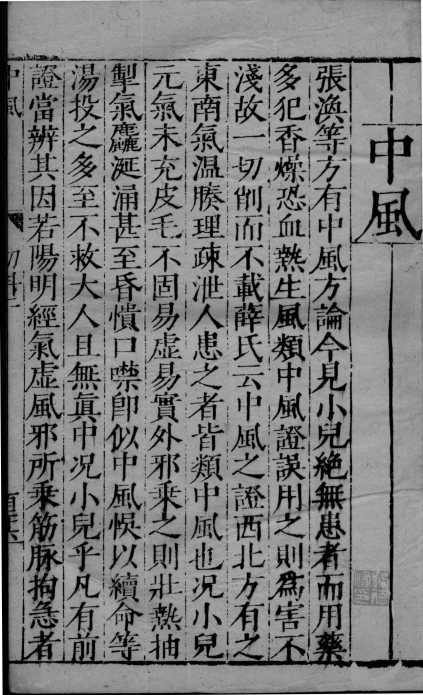 中風
張渙等方有中風方論今見小兒絶無患者而用藥
多犯香燥恐血熱生風類中風證誤用之則爲害不
淺故一切削而不載薛氏云中風之證西北方有之
東南氣溫腠理疎泄人患之者皆類中風也况小兒
元氣未充皮毛不固易虛易實外邪乘之則壯熱抽
掣氣麤涎涌甚至昏憒口噤卽似中風悞以續命等
湯投之多至不救大人且無眞中况小兒乎凡有前
證當辨其因若陽明經氣虛風邪所乘筋脉拘急者
中風
幼科